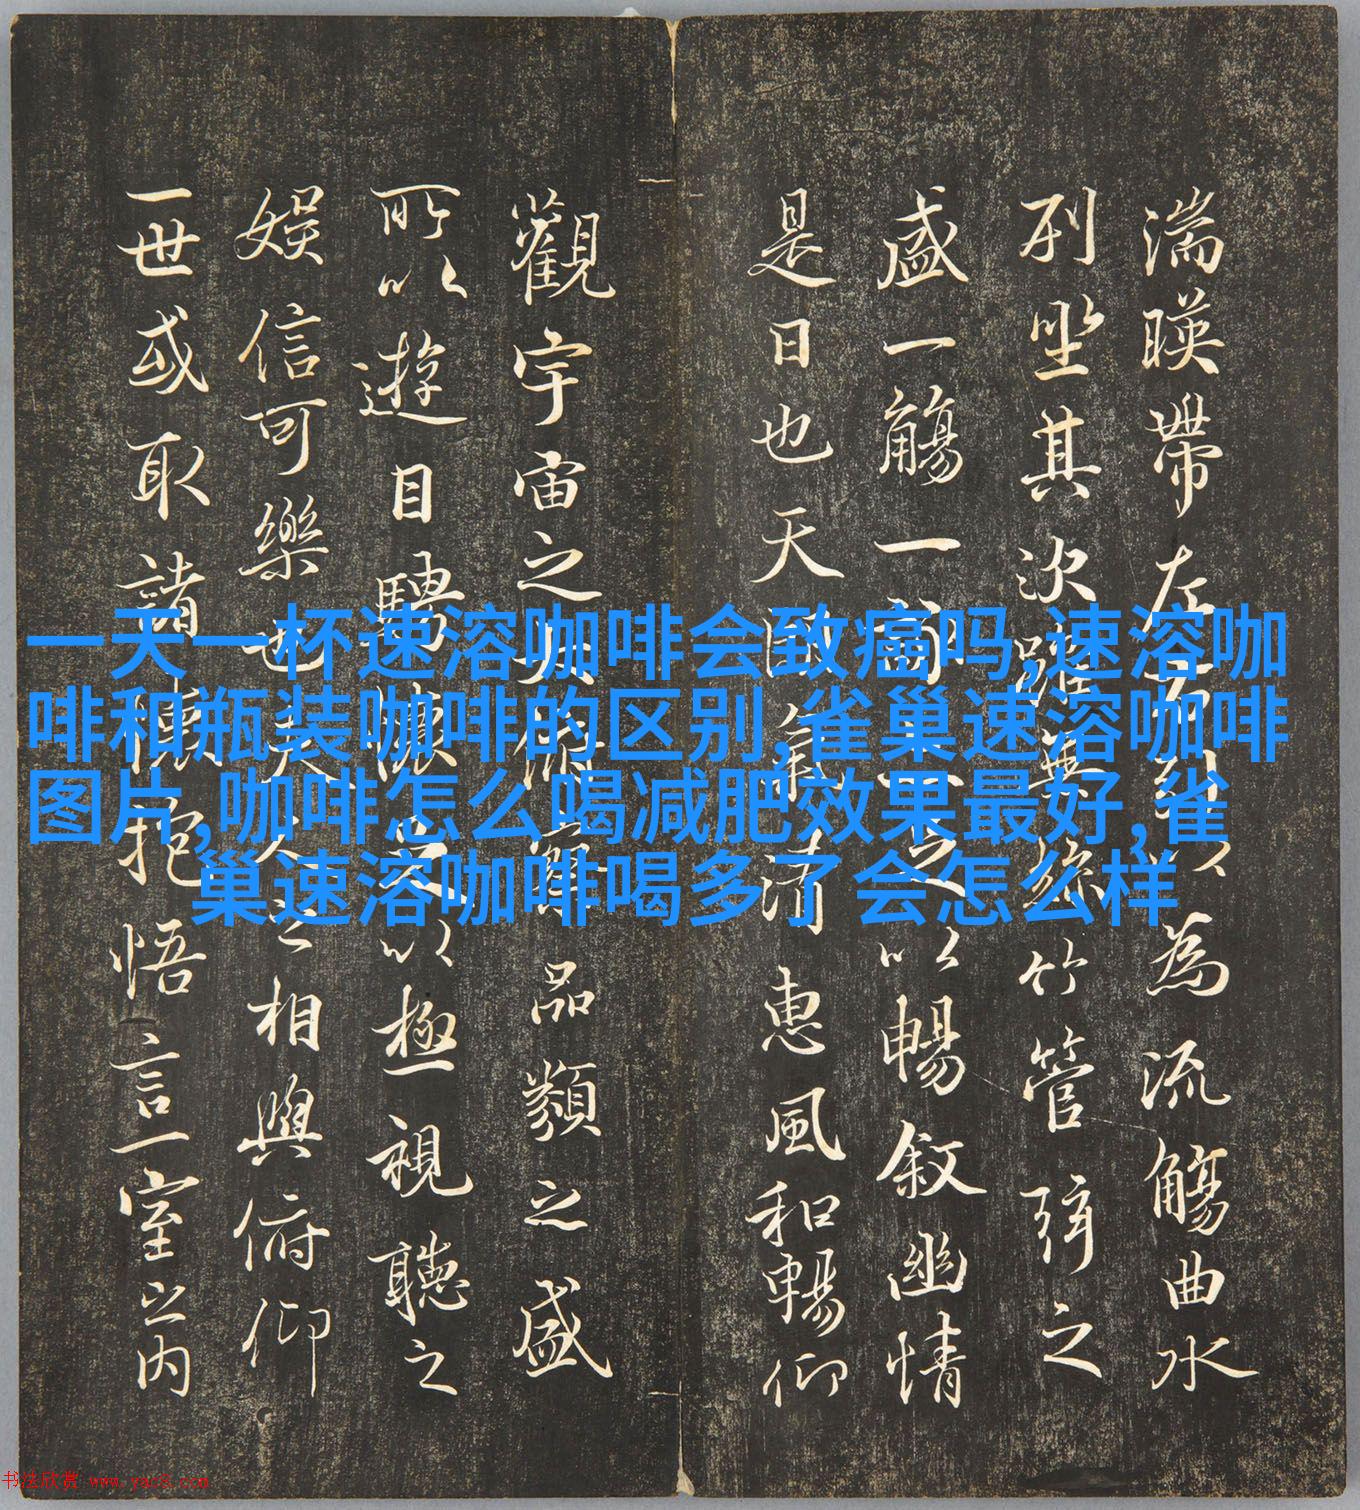 湍暎帶左右引以為流觴曲水
列坐其次雖無絲竹管弦之
盛一觴一詠亦足以暢敘幽情
是日也天朗氣清惠風和暢仰
觀宇宙之大俯察品類之盛
所以遊目騁懷足以極視聽之
娛信可樂也夫人之相與俯仰
一世或取諸懷抱悟言一室之内
一天一杯速溶咖啡会致癌吗,速溶咖
啡和瓶装咖啡的区别,雀巢速溶咖啡
图片,咖啡怎么喝减肥效果最好,雀
巢速溶咖啡喝多了会怎么样
书法欣赏 www.yac8.com